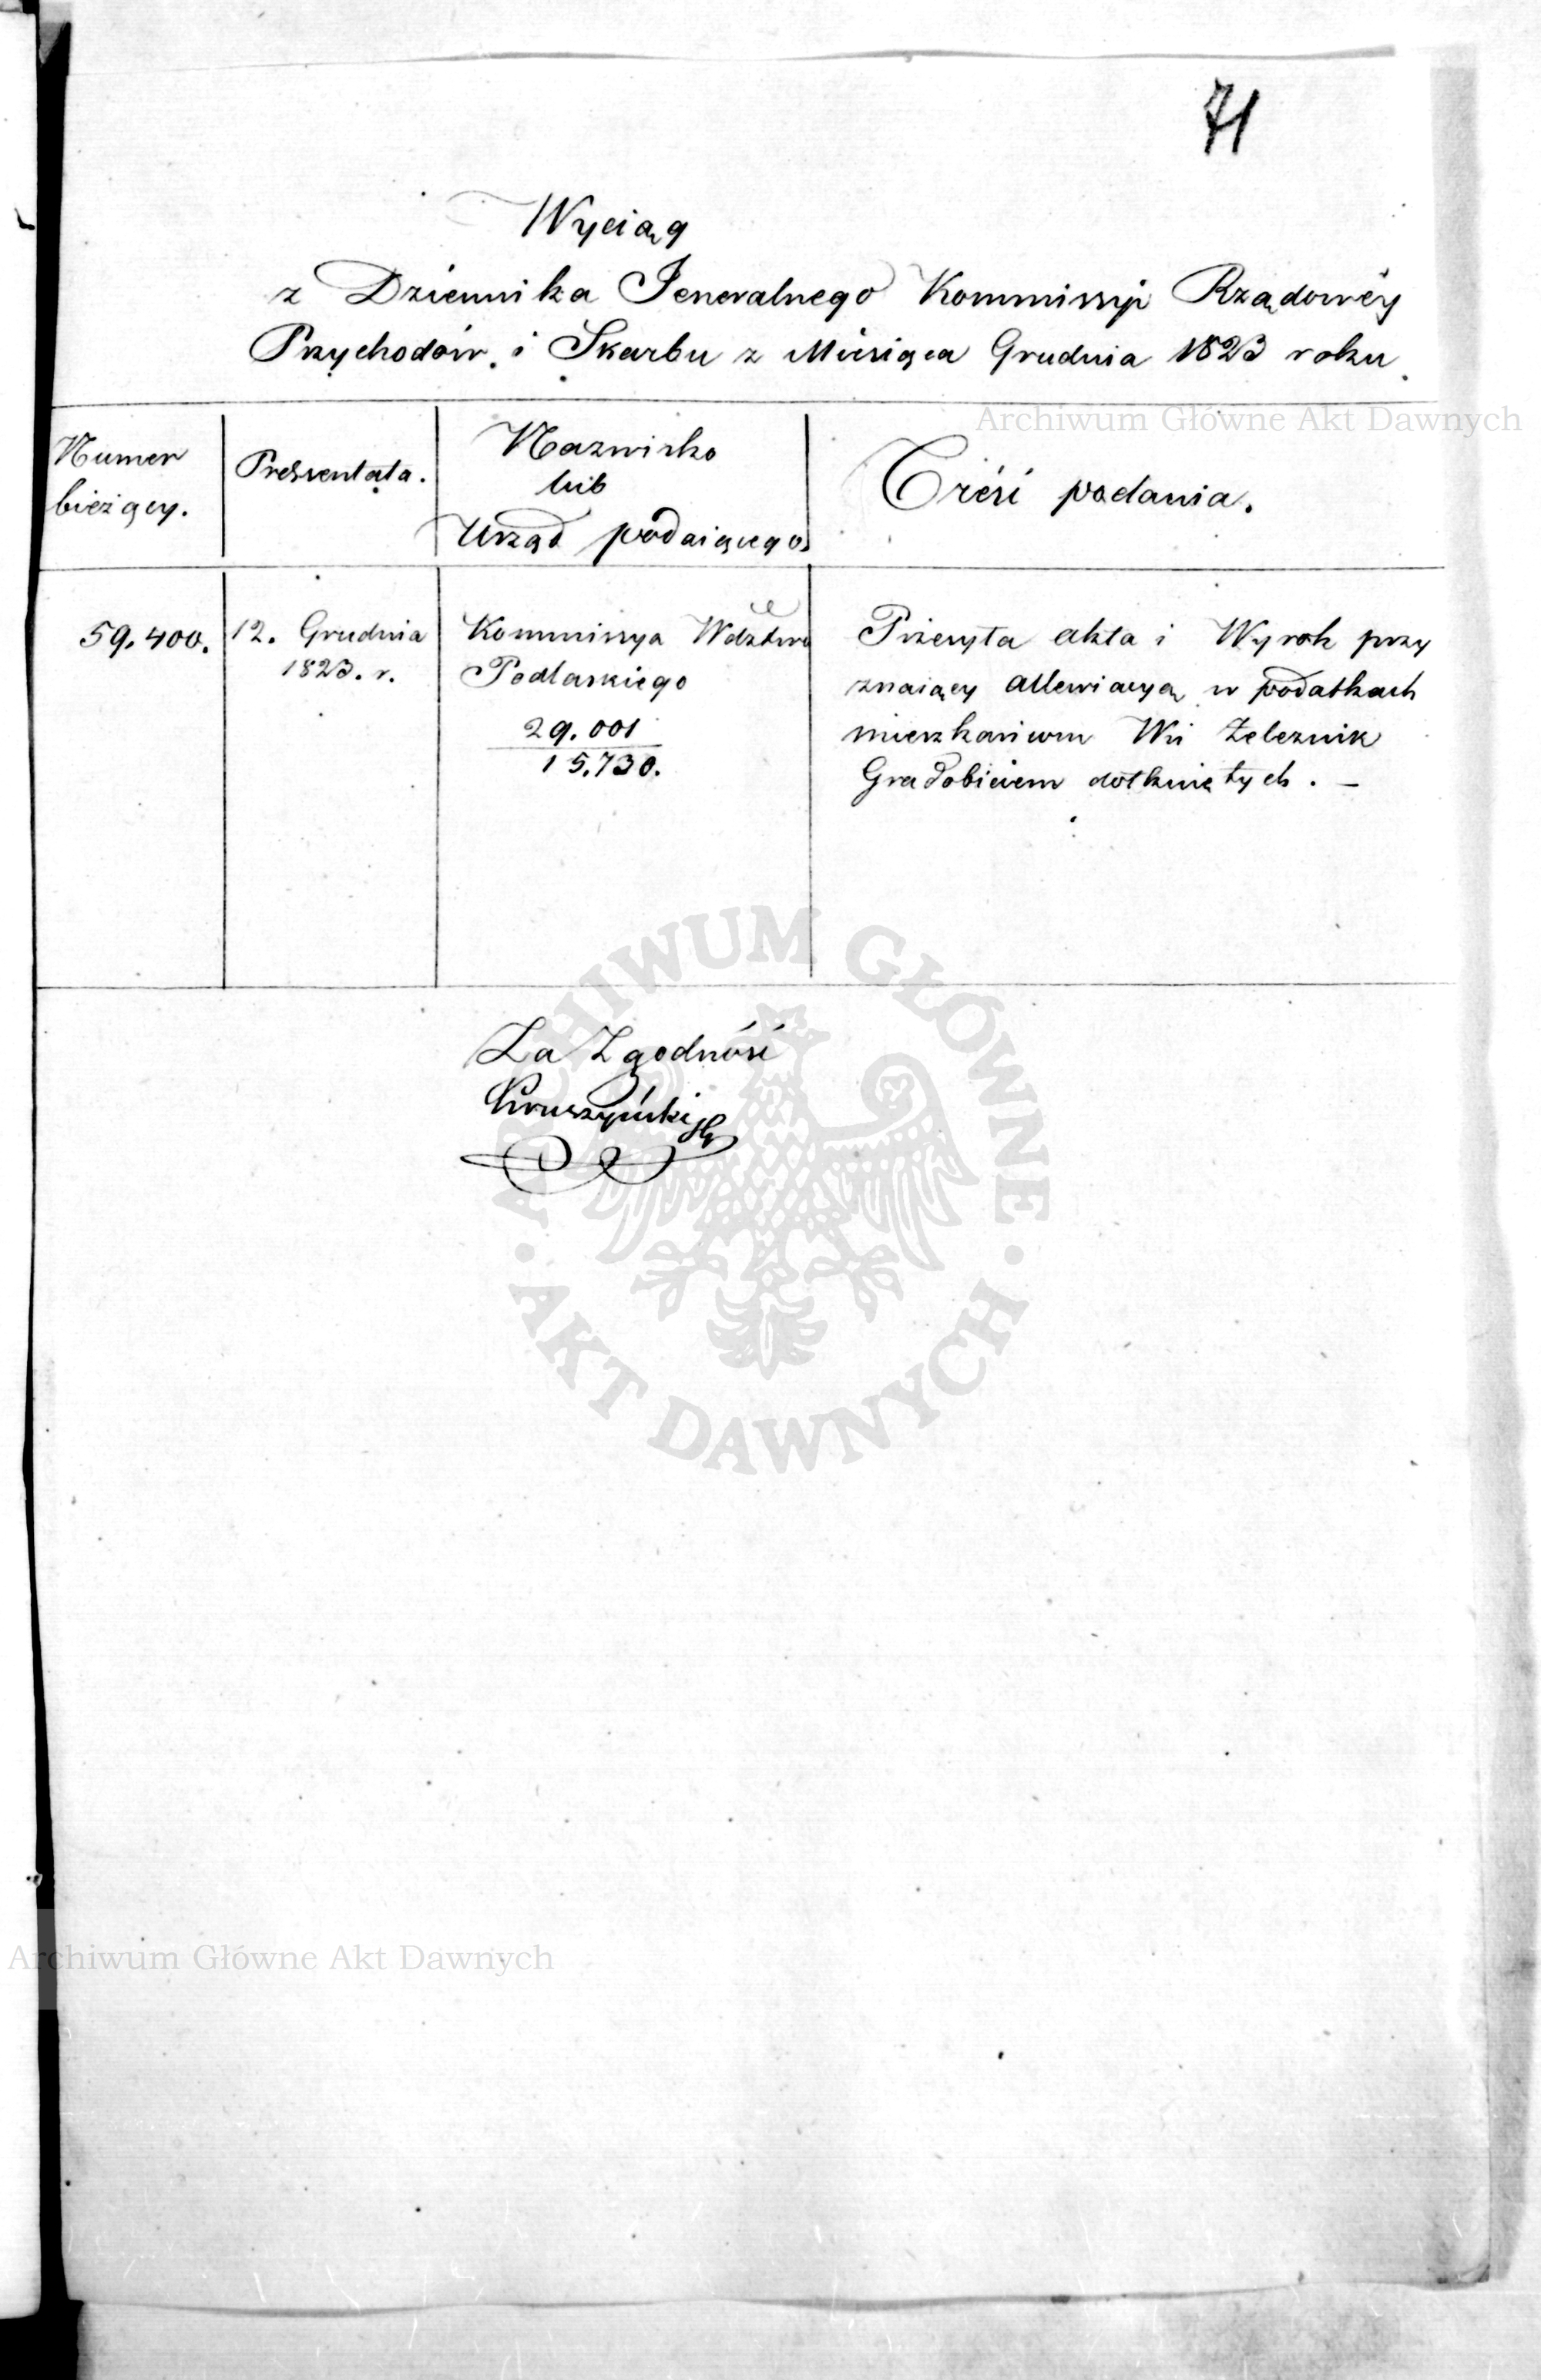 71
Wyciąg
z Dziennika Jeneralnego Kommissyi Rządowéy
Przychodów i Skarbu z Miesiąca Grudnia 1823 roku.
Archiwum Główne Akt Dawnych
Numer
bieżący.
Pressentata.
Nazwisko
lub
Urząd podaiącego
Treść podania.
59,400.
12. Grudnia
1823. r.
Kommissya Wdztwa
Podlaskiego
29.001
15,730.
Przesyła akta i Wyrok przy
znaiący allewiacyą w podatkach
mieszkańcom Wsi Żeleznik
Gradobiciem dotkniętych. –
Za Zgodność
ARCHIWUM GŁÓWNE
AKT DAWNYCH
Archiwum Główne Akt Dawnych